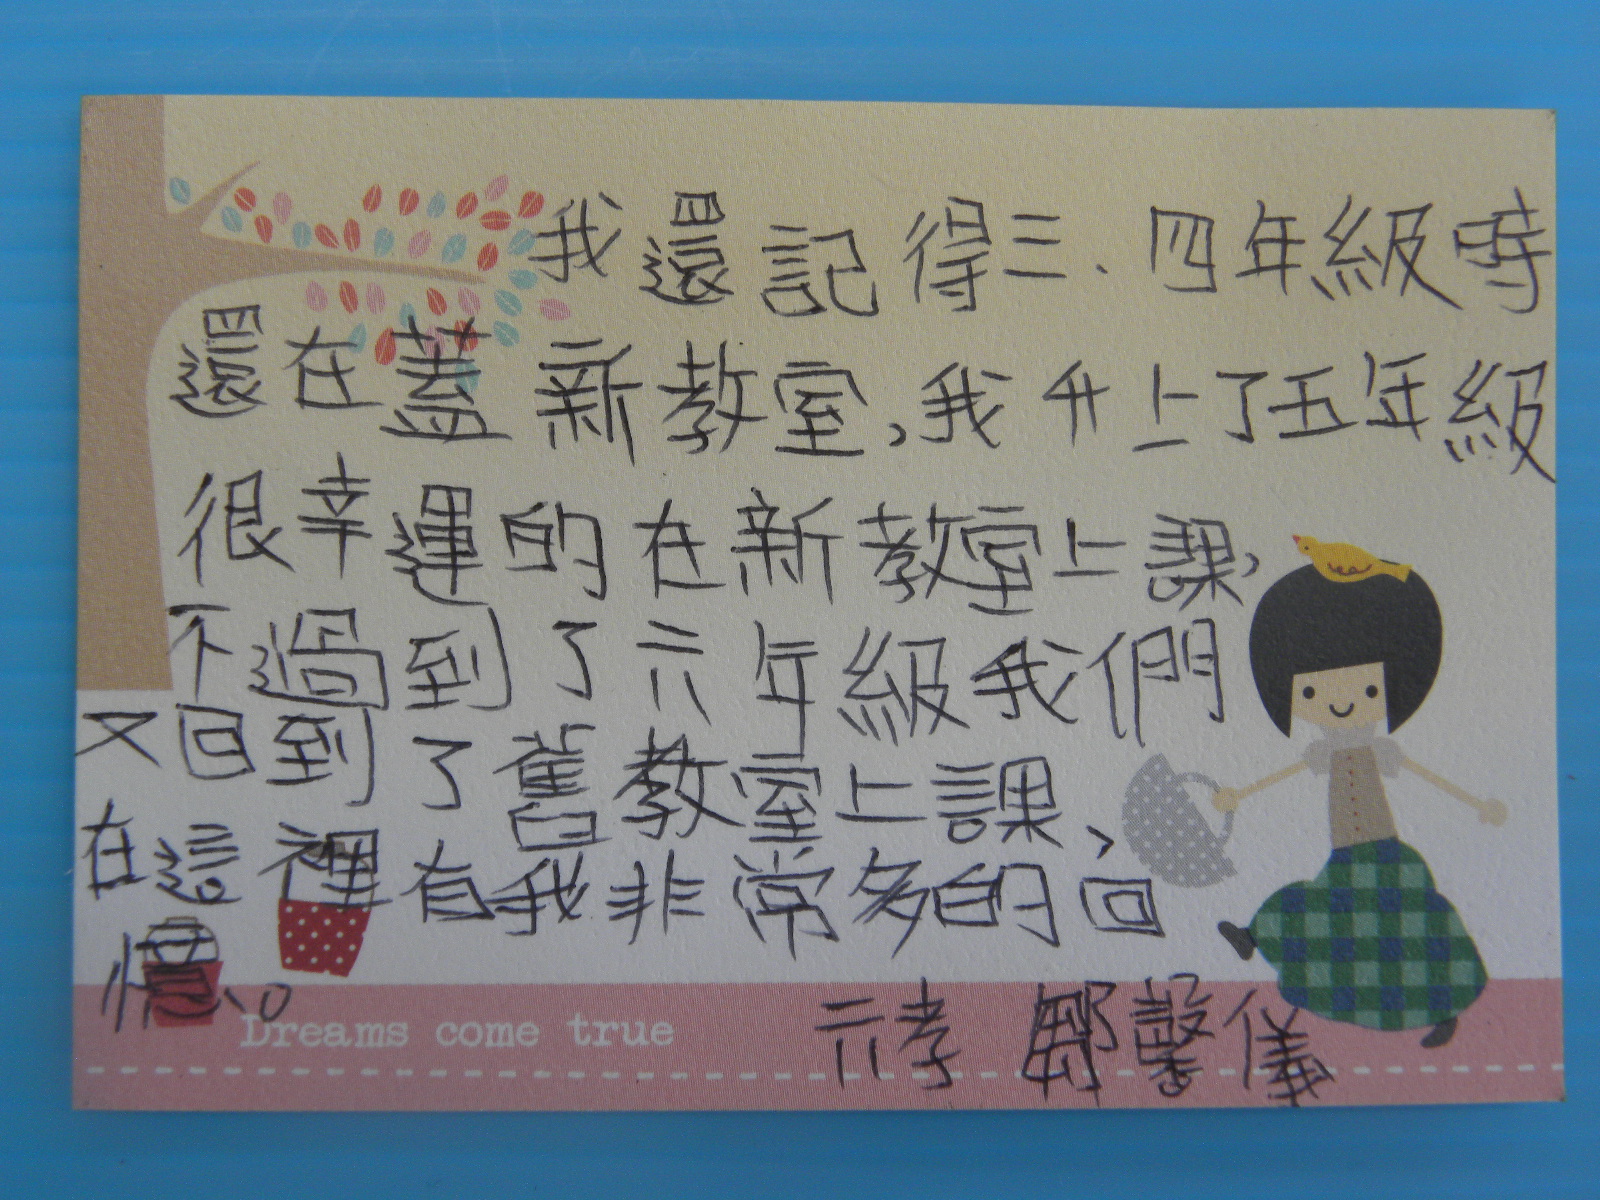 我還記得三、四年級時
還在蓋新教室,我升上了五年級
很幸運的在新教室上課,
不過到了六年級我們
又回到了舊教室上課,
在這裡有我非常多的回
憶。
Dreams come true
六孝 鄒馨儀